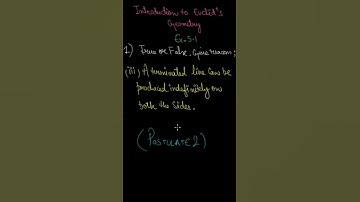 Introduction to Euclid's
Geometry
Ex. 5.1
1) True or False. Give reason:
(iii) A terminated line can be
produced indefinitely on
both the sides.
(POSTULATE 2)